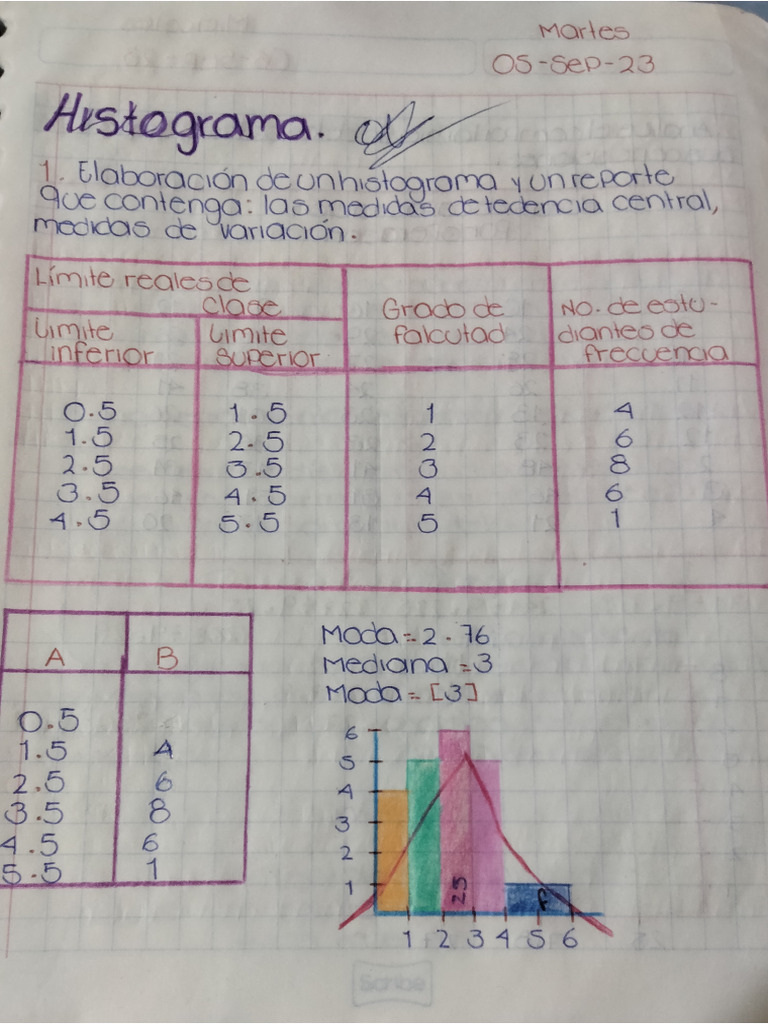 Martes
05-Sep-23
Histograma.
1. Elaboración de un histograma y un reporte
que contenga: las medidas de tedencia central,
medidas de variación.
Límite reales de
clase
Límite
inferior
Límite
superior
Grado de
falcutad
No. de estu-
diantes de
frecuencia
0.5 1.5 1 4
1.5 2.5 2 6
2.5 3.5 3 8
3.5 4.5 4 6
4.5 5.5 5 1
A B
0.5
1.5 4
2.5 6
3.5 8
4.5 6
5.5 1
Moda = 2.76
Mediana = 3
Moda = [3]
6
5
4
3
2
1
25
1 2 3 4 5 6
Scribe